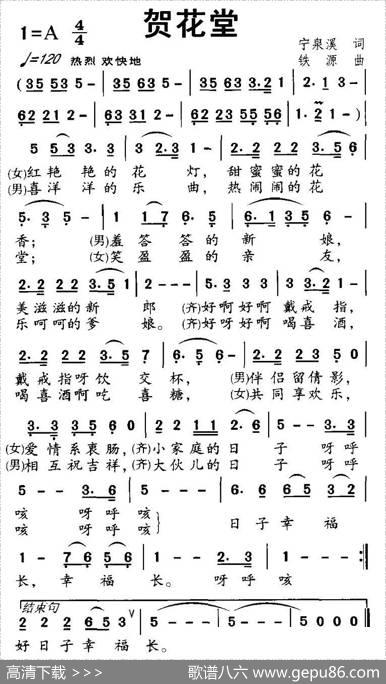 贺花堂
1=A 4/4
宁泉溪 词
♩=120 热烈 欢快地
铁源 曲
(35 53 5 - | 35 63 5 - | 35 63 3·2 1 | 2·1 3 -
62 21 2 - | 63 31 3 - | 62 23 55 56 | 1·2 1 - )
5 5 3 3·3 | 3 2·3 1 - | 2·2 2 2 3·5 6
(女)红艳 艳的花 灯, 甜蜜蜜的花
(男)喜洋 洋的乐 曲, 热闹闹的花
5·3 5 - | 1 17 6·5 | 6·1 35 6 -
香; (男)羞答答的新 娘,
堂; (女)笑盈盈的亲 友,
2·2 2 2 3·5 1 - | 5·3 5 3 3 | 3 3·2 1 -
美滋滋的新 郎 (齐)好啊好啊 戴戒指,
乐呵呵的爹 娘。 (齐)好呀好啊 喝喜酒,
2·2 22 3·5 | 6·5 6 - | 2·2 2 3 5 0
戴戒指呀饮 交杯, (男)伴侣留倩影,
喝喜酒啊吃 喜糖, (女)共同享欢乐,
3·3 3 5 6 0 | 2 2 1 1 2·6 | 5 - 3·5
(女)爱情系衷肠, (齐)小家庭的日 子 呀呼
(男)相互祝吉祥, (齐)大伙儿的日 子 呀呼
5 - - 3·6 | 5 - - - | 6·6 65 32
咳 呀呼 咳
咳 呀呼 咳
日子幸福
1 - 76 56 | 1 - - - | 1 - 2·3 | 1 - - - :‖
长, 幸福 长。 呀呼 咳
结束句
2 2 2 653 ∨ | 5 - - - | 5 - - - | 5 0 0 0 ‖
好日子幸福 长。
高清下载 >>>
歌谱八六 www.gepu86.com